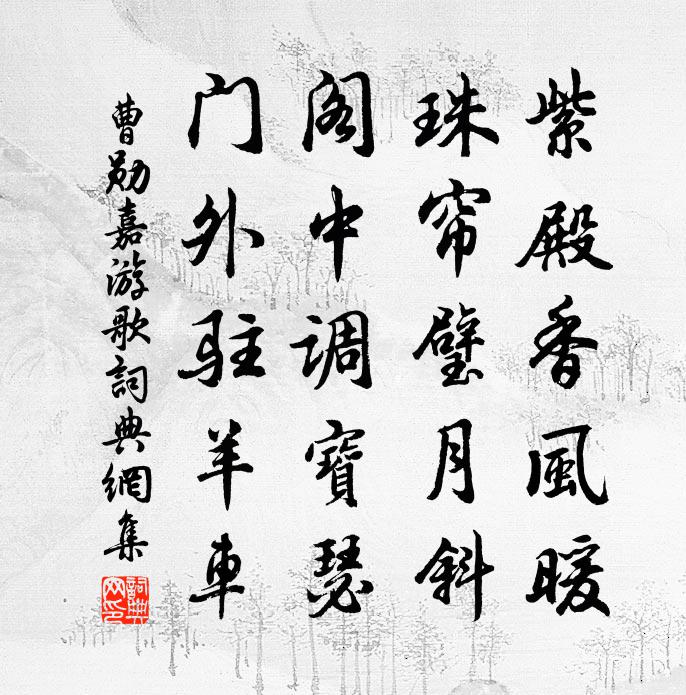 紫殿香風暖
珠帘璧月斜
阁中调寶瑟
门外驻羊車
曹勋嘉游歌詞典網集
詞典网印